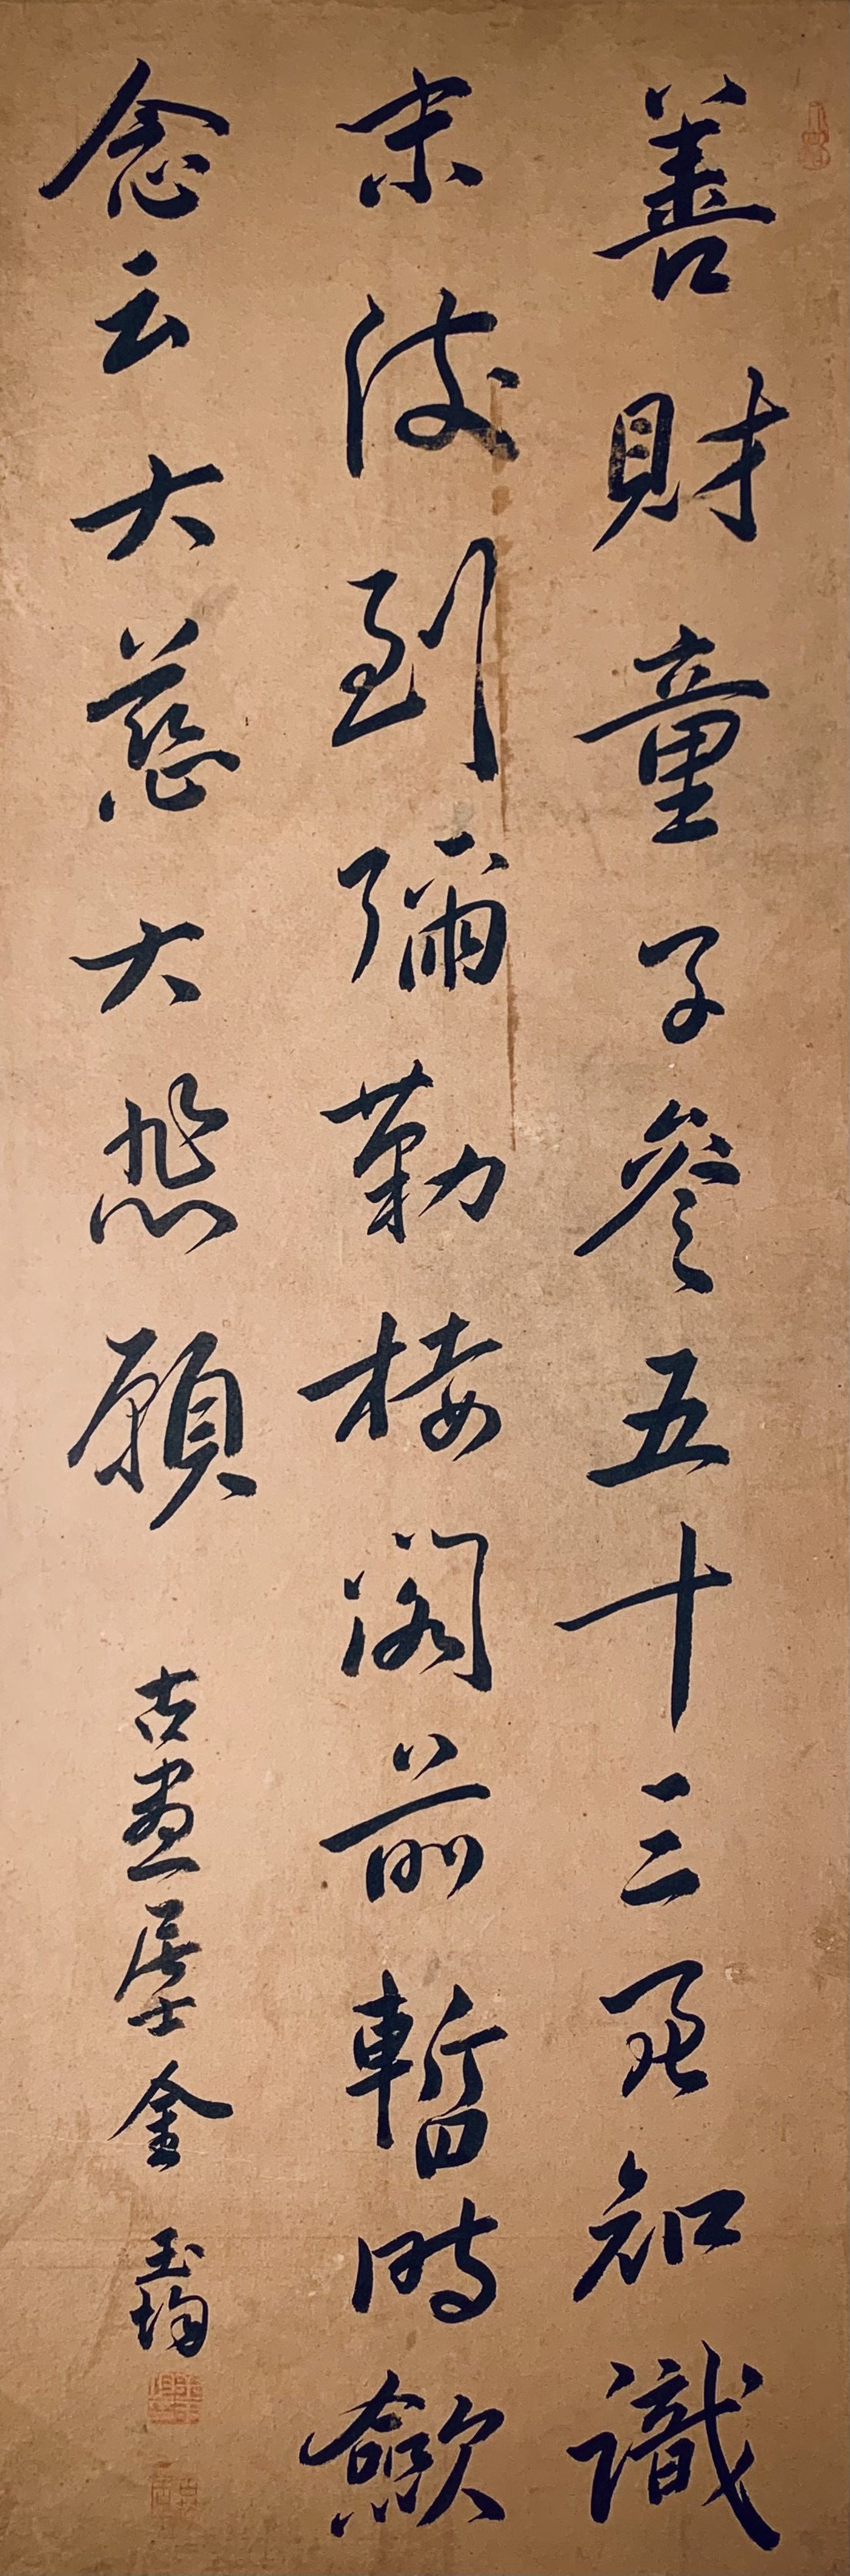 善財童子參五十三員知識
末後到彌勒楼閣前暫時歛
念云大慈大悲願
古畫居士金玉均